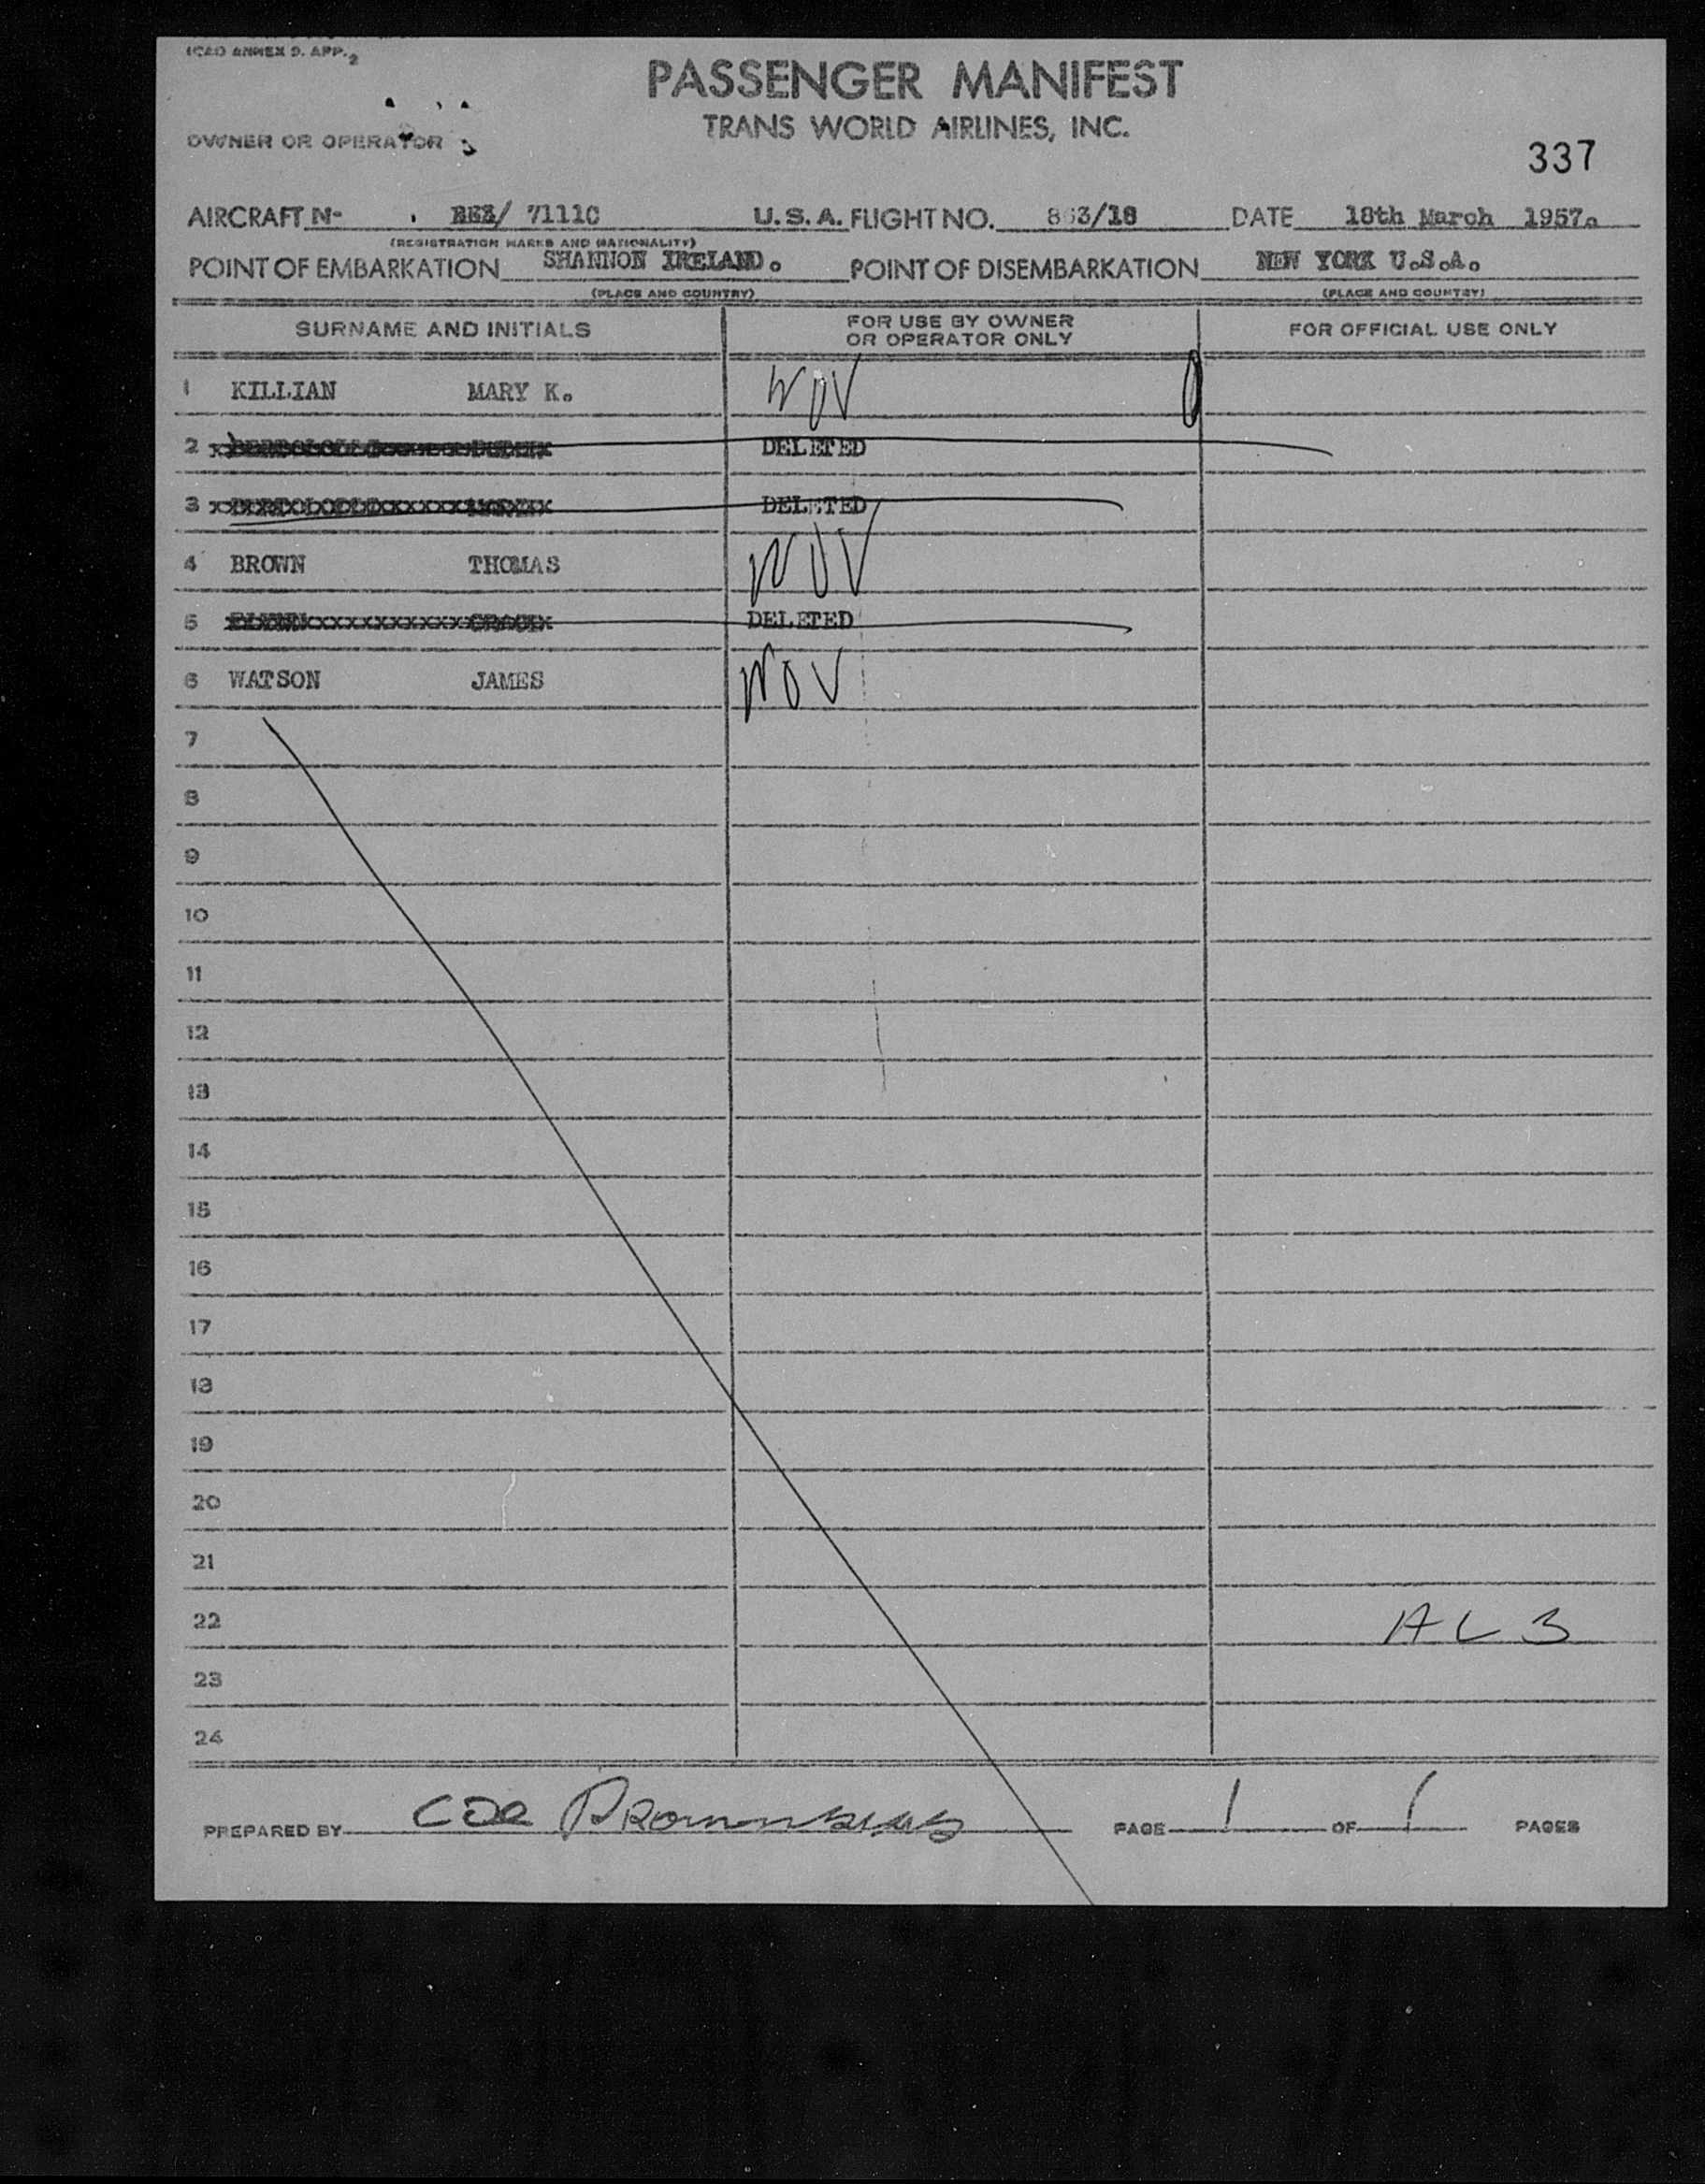 ICAO ANNEX 9. APP. 2
PASSENGER MANIFEST
TRANS WORLD AIRLINES, INC.
OWNER OR OPERATOR
337
AIRCRAFT Nº 71110 U.S.A. FLIGHT NO. 863/18 DATE 18th March 1957.
(REGISTRATION MARKS AND NATIONALITY)
POINT OF EMBARKATION SHANNON IRELAND. POINT OF DISEMBARKATION NEW YORK U.S.A.
(PLACE AND COUNTRY) (PLACE AND COUNTRY)
SURNAME AND INITIALS FOR USE BY OWNER OR OPERATOR ONLY FOR OFFICIAL USE ONLY
1 KILLIAN MARY K. WOV
2 DELETED
3 DELETED
4 BROWN THOMAS WOV
5 DELETED
6 WATSON JAMES WOV
7
8
9
10
11
12
13
14
15
16
17
18
19
20
21
22 AL3
23
24
PREPARED BY PAGE 1 OF 1 PAGES